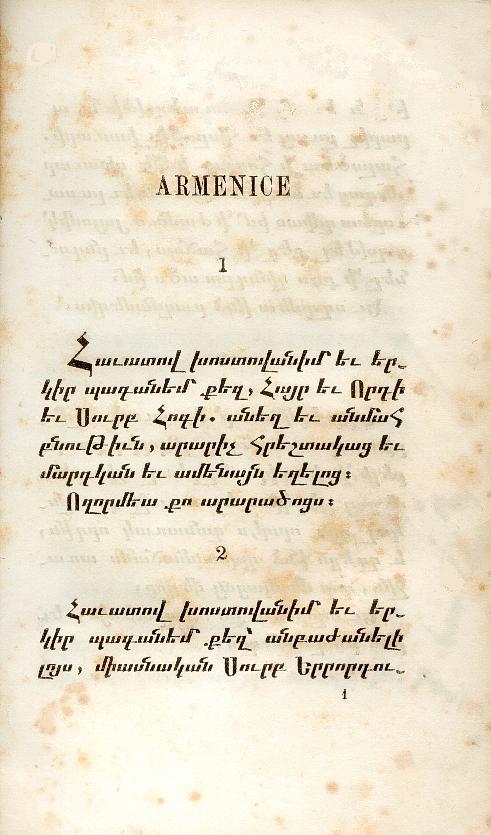 ARMENICE
1
Հաւատով խոստովանիմ եւ եր֊
կիր պագանեմ քեզ, Հայր եւ Որդի
եւ Սուրբ Հոգի. անեղ եւ անմահ
բնութիւն, արարիչ հրեշտակաց եւ
մարդկան եւ ամենայն եղելոց։
Ողորմեա քո արարածոցս։
2
Հաւատով խոստովանիմ եւ եր֊
կիր պագանեմ քեզ՝ անբաժանելի
լոյս, միասնական Սուրբ Երրորդու֊
1